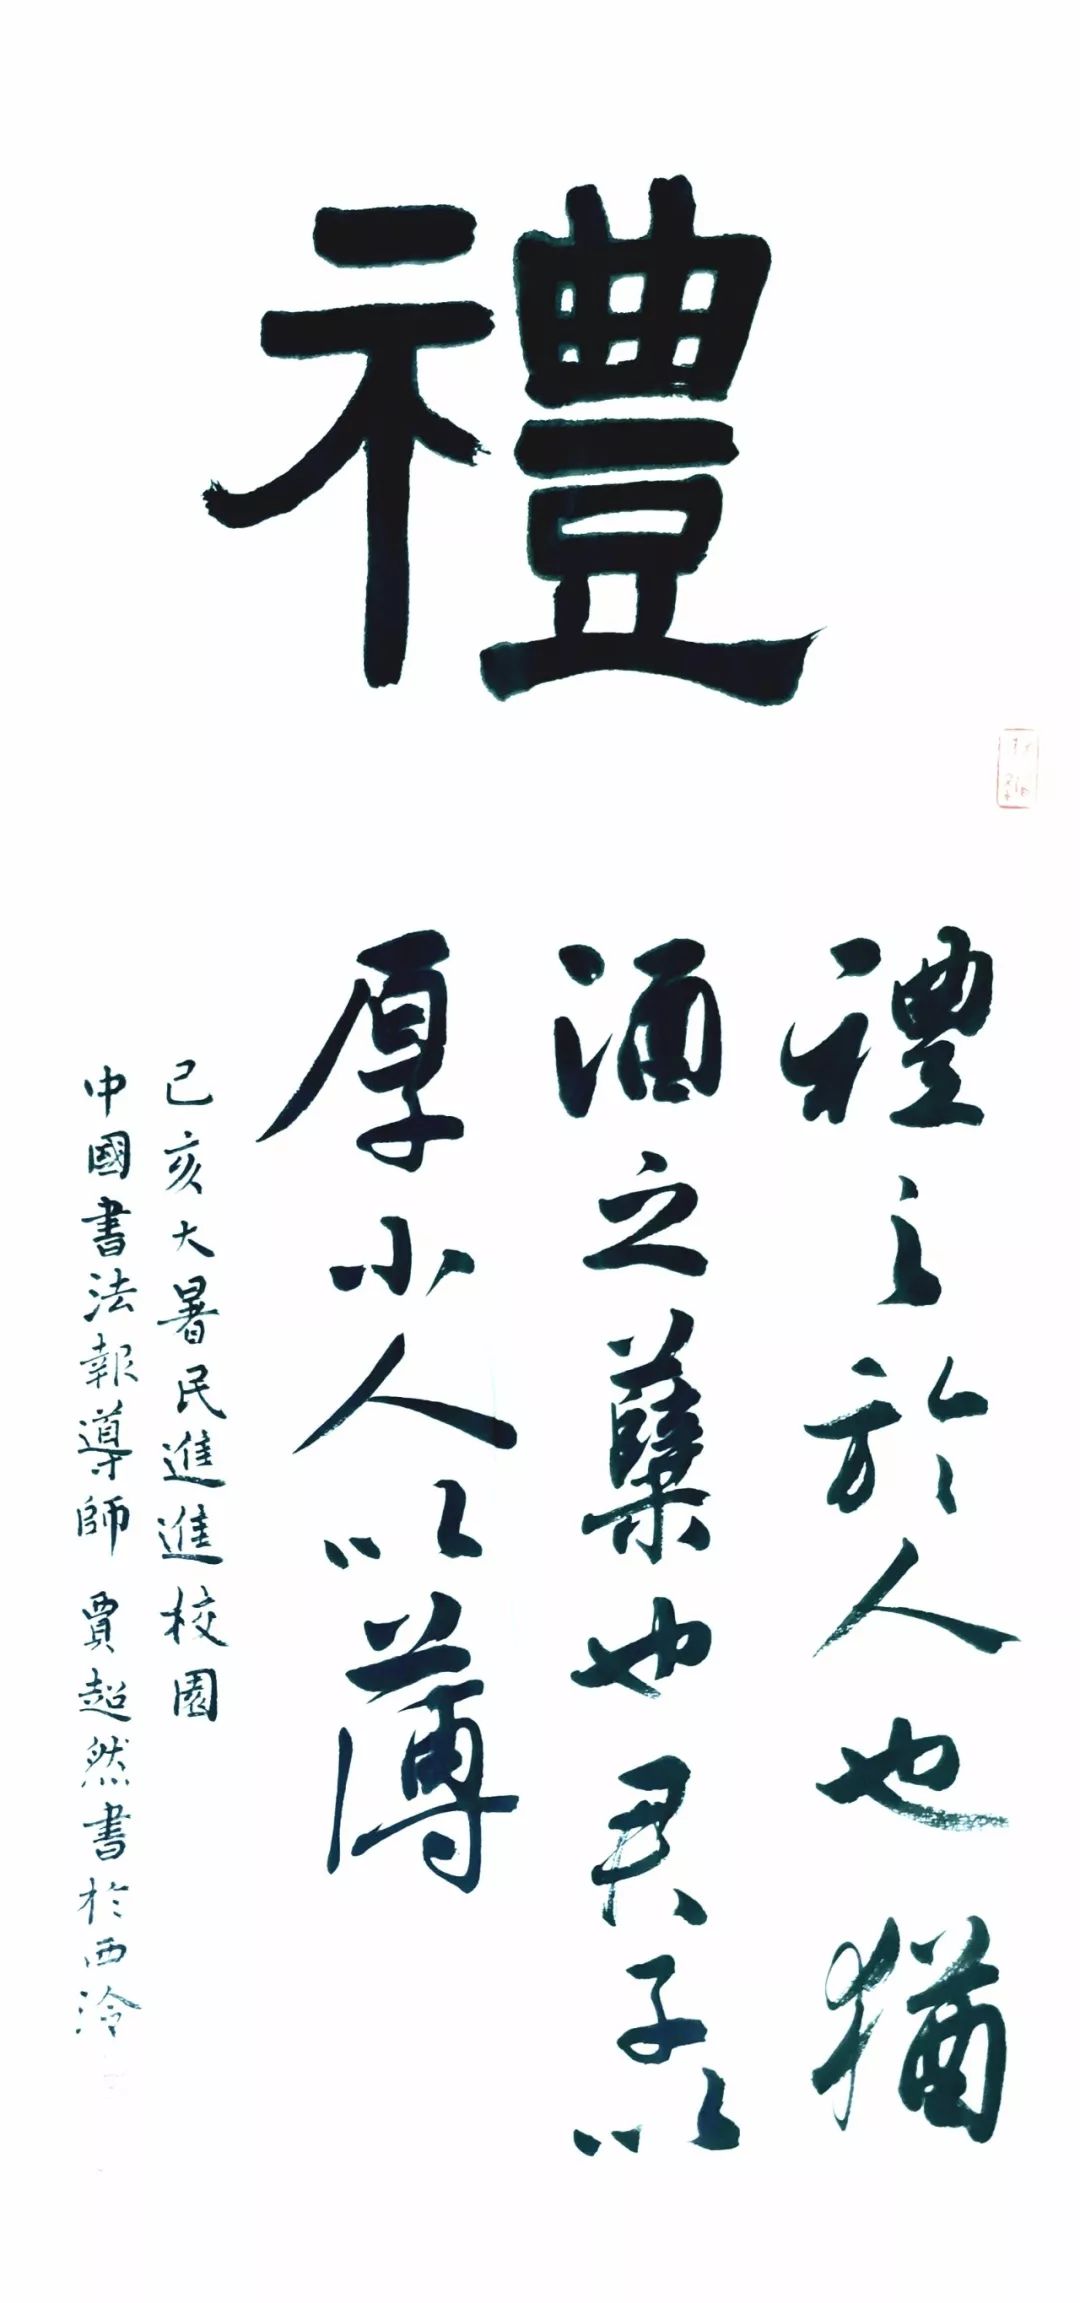 禮
禮之於人也猶
酒之糵也君子以
厚小人以薄
己亥大暑民進進校園
中國書法報導師 賈超然書於西泠